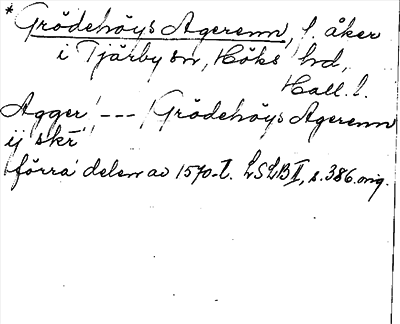 *Grödehöys Agerenn, f. åker
i Tjärby sn, Höks hd,
Hall. l.
Agger --- Grödehöys Agerenn
ij skr
förra delen av 1570-t. LSLB II, s. 386. orig.